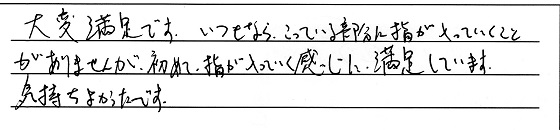 大変満足です。いつもなら、こっている部分に指が入っていくこと
がありませんが、初めて、指が入っていく感じに、満足しています。
気持ちよかったです。